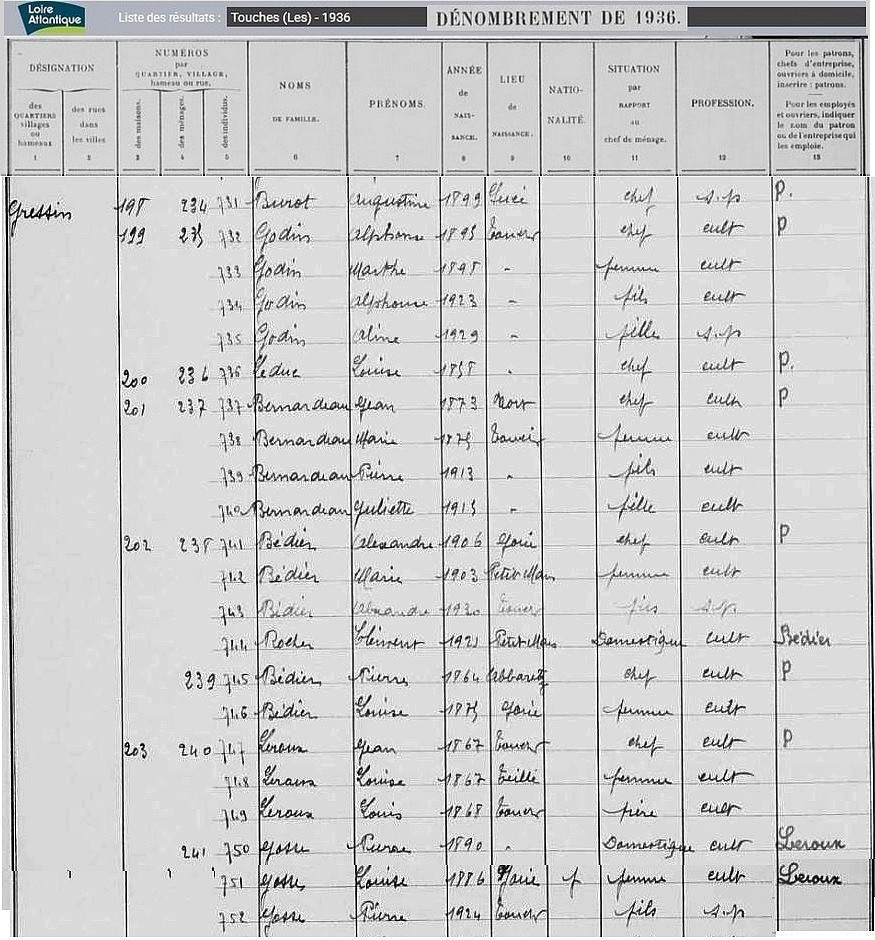 Loire Atlantique Liste des résultats : Touches (Les) - 1936 DÉNOMBREMENT DE 1936.
DÉSIGNATION
des QUARTIERS villages ou hameaux 1
des rues dans les villes 2
NUMÉROS par QUARTIER, VILLAGE, hameau ou rue.
des maisons. 3
des ménages. 4
des individus. 5
NOMS DE FAMILLE. 6
PRÉNOMS. 7
ANNÉE de NAISSANCE. 8
LIEU de NAISSANCE. 9
NATIONALITÉ. 10
SITUATION par RAPPORT au chef de ménage. 11
PROFESSION. 12
Pour les patrons, chefs d'entreprise, ouvriers à domicile, inscrire : patrons.
Pour les employés et ouvriers, indiquer le nom du patron ou de l'entreprise qui les emploie. 13
Gressin 198 234 731 Burot Augustine 1899 chef s.p P.
199 235 732 Godin Alphonse 1895 Touches chef cult P
733 Godin Marthe 1898 - femme cult
734 Godin Alphonse 1923 - fils cult
735 Godin Aline 1929 - fille s.p
200 236 736 Leduc Louise 1858 - chef cult P.
201 237 737 Bernardeau Jean 1873 Nort chef cult P
738 Bernardeau Marie 1875 Touches femme cult
739 Bernardeau Pierre 1913 " fils cult
740 Bernardeau Juliette 1915 - fille cult
202 238 741 Bédier Alexandre 1906 Joué chef cult P
742 Bédier Marie 1903 Petit Mars femme cult
743 Bédier Alexandre 1930 Touches fils s.p.
744 Rocher Clément 1921 Petit Mars Domestique cult Bédier
239 745 Bédier Pierre 1864 Abbaretz chef cult P
746 Bédier Louise 1875 Joué femme cult
203 240 747 Leroux Jean 1867 Touches chef cult P
748 Leroux Louise 1867 Teillé femme cult
749 Leroux Louis 1868 Touches frère cult
241 750 Gosse Pierre 1890 " Domestique cult Leroux
751 Gosse Louise 1886 Joué f femme cult Leroux
752 Gosse Pierre 1924 Touches fils s.p